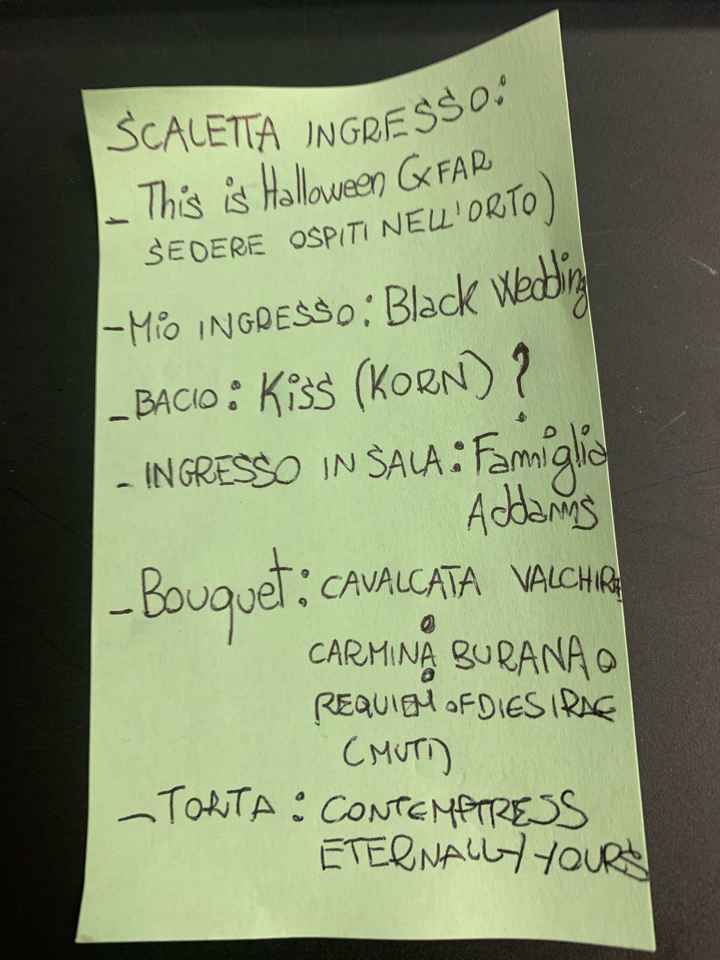 SCALETTA INGRESSO:
- This is Halloween (x FAR
SEDERE OSPITI NELL'ORTO)
- Mio INGRESSO: Black Wedding
- BACIO: Kiss (KORN) ?
- INGRESSO IN SALA: Famiglia
Addams
- Bouquet: CAVALCATA VALCHIRIE
o
CARMINA BURANA o
o
REQUIEM OF DIES IRAE
(MUTI)
- TORTA: CONTEMPTRESS
ETERNALLY YOURS